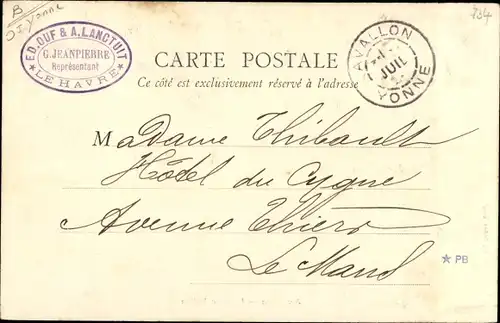 B
Yonne
734
ED. OUF & A. LANCTUIT
G. JEANPIERRE
Représentant
LE HAVRE
AVALLON
JUIL
YONNE
CARTE POSTALE
Ce côté est exclusivement réservé à l'adresse
Madame Thibault
Hôtel du Cygne
Avenue Thiers
Le Mans
★ PB